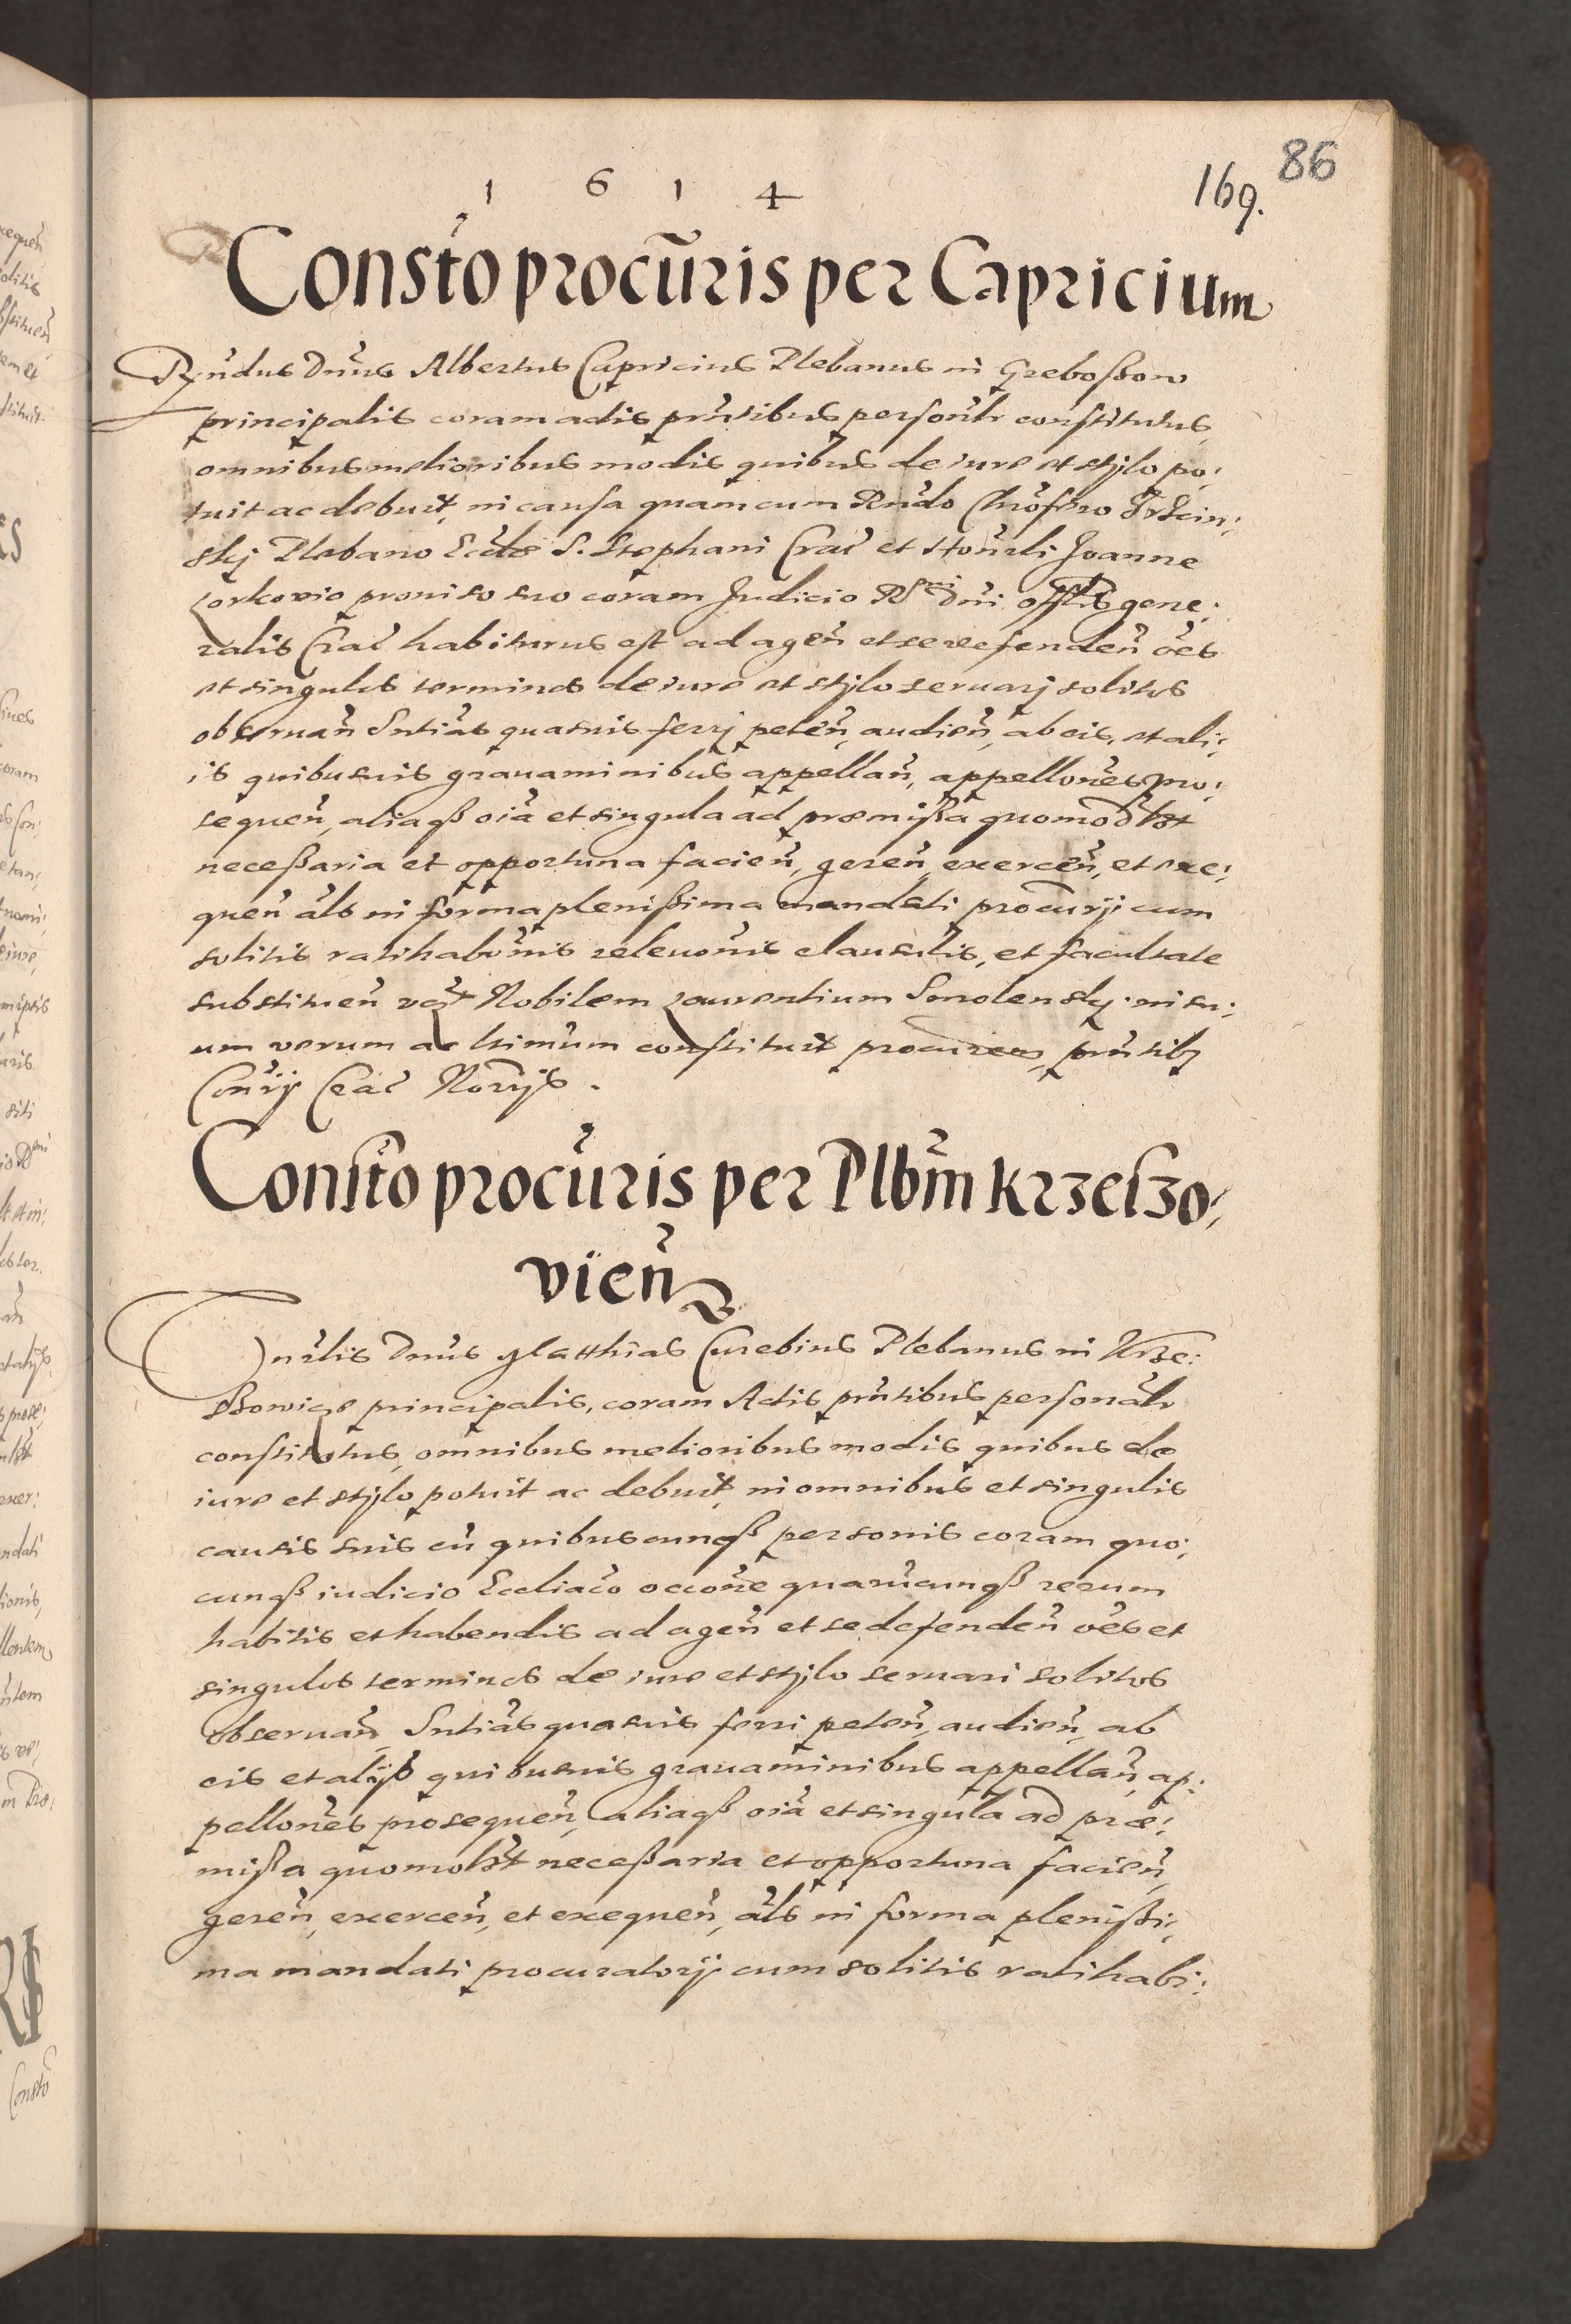 86
169.
1 6 1 4
Consťo procũris per Capricium
Rñdus Dñus Albertus Capricius Plebanus in Grebossow
principalis coram actis prñtibus personłr constitutus,
omnibus melioribus modis quibus de iure et stylo po:
tuit ac debuit, in causa quam cum Rndo Chrõfero Trzcin:
skj Plebano Ecclæ S. Stephani Crac̃ et Honrãli Joanne
Lorkovio proviso suo coram Judicio Rssmi Dñi offłis gene:
ralis Crac̃ habiturus est ad agen̄ et se defenden̄ ões
et singulos terminos de iure et stylo seruarj solitos
obseruan̄ Sntiãs quasuis ferrj peten̄, audien̄, ab eis, et ali:
is quibusuis grauaminibus appellan̄, appellones pro:
sequen̄, aliaqß oia et singula ad præmißa quomodłt
neceßaria et opportuna facien̄, geren̄, exercen̄, et exe:
quen̄ als in forma plenißima mandati procurij cum
solitis ratihabõnis releuõnis clausulis, et facultate
substituen̄ Nobilem Laurentium Smolensky in su:
um verum ac ltimum constituit procurem, prñtibꝫ
Conrij Crac̃ Norijs.
Consťo procũris per Plbm̃ Krzeszo:
vien̄
Hnrãlis Dnus Matthias Curebius Plebanus in Krze:
szowice principalis, coram Actis prñtibus personalr
constitutus, omnibus melioribus modis quibus de
iure et stylo potuit ac debuit, in omnibus et singulis
causis suis cũ quibuscunqß personis coram quo:
cunqß iudicio Eccliaco occone quarũcunqß rerum
habitis et habendis ad agen̄ et se defenden̄ ões et
singulos terminos de iure et stylo seruari solitos
obseruan̄ Sntiãs quasuis ferri peten̄, audien̄, ab
eis et alijs quibusuis grauaminibus appellan̄, ap:
pellones prosequen̄, aliaqß oia et singula ad præ:
mißa quomolt neceßaria et opportuna facien̄,
geren̄, exercen̄, et exequen̄, als in forma plenißi:
ma mandati procuratorij cum solitis ratihabi: